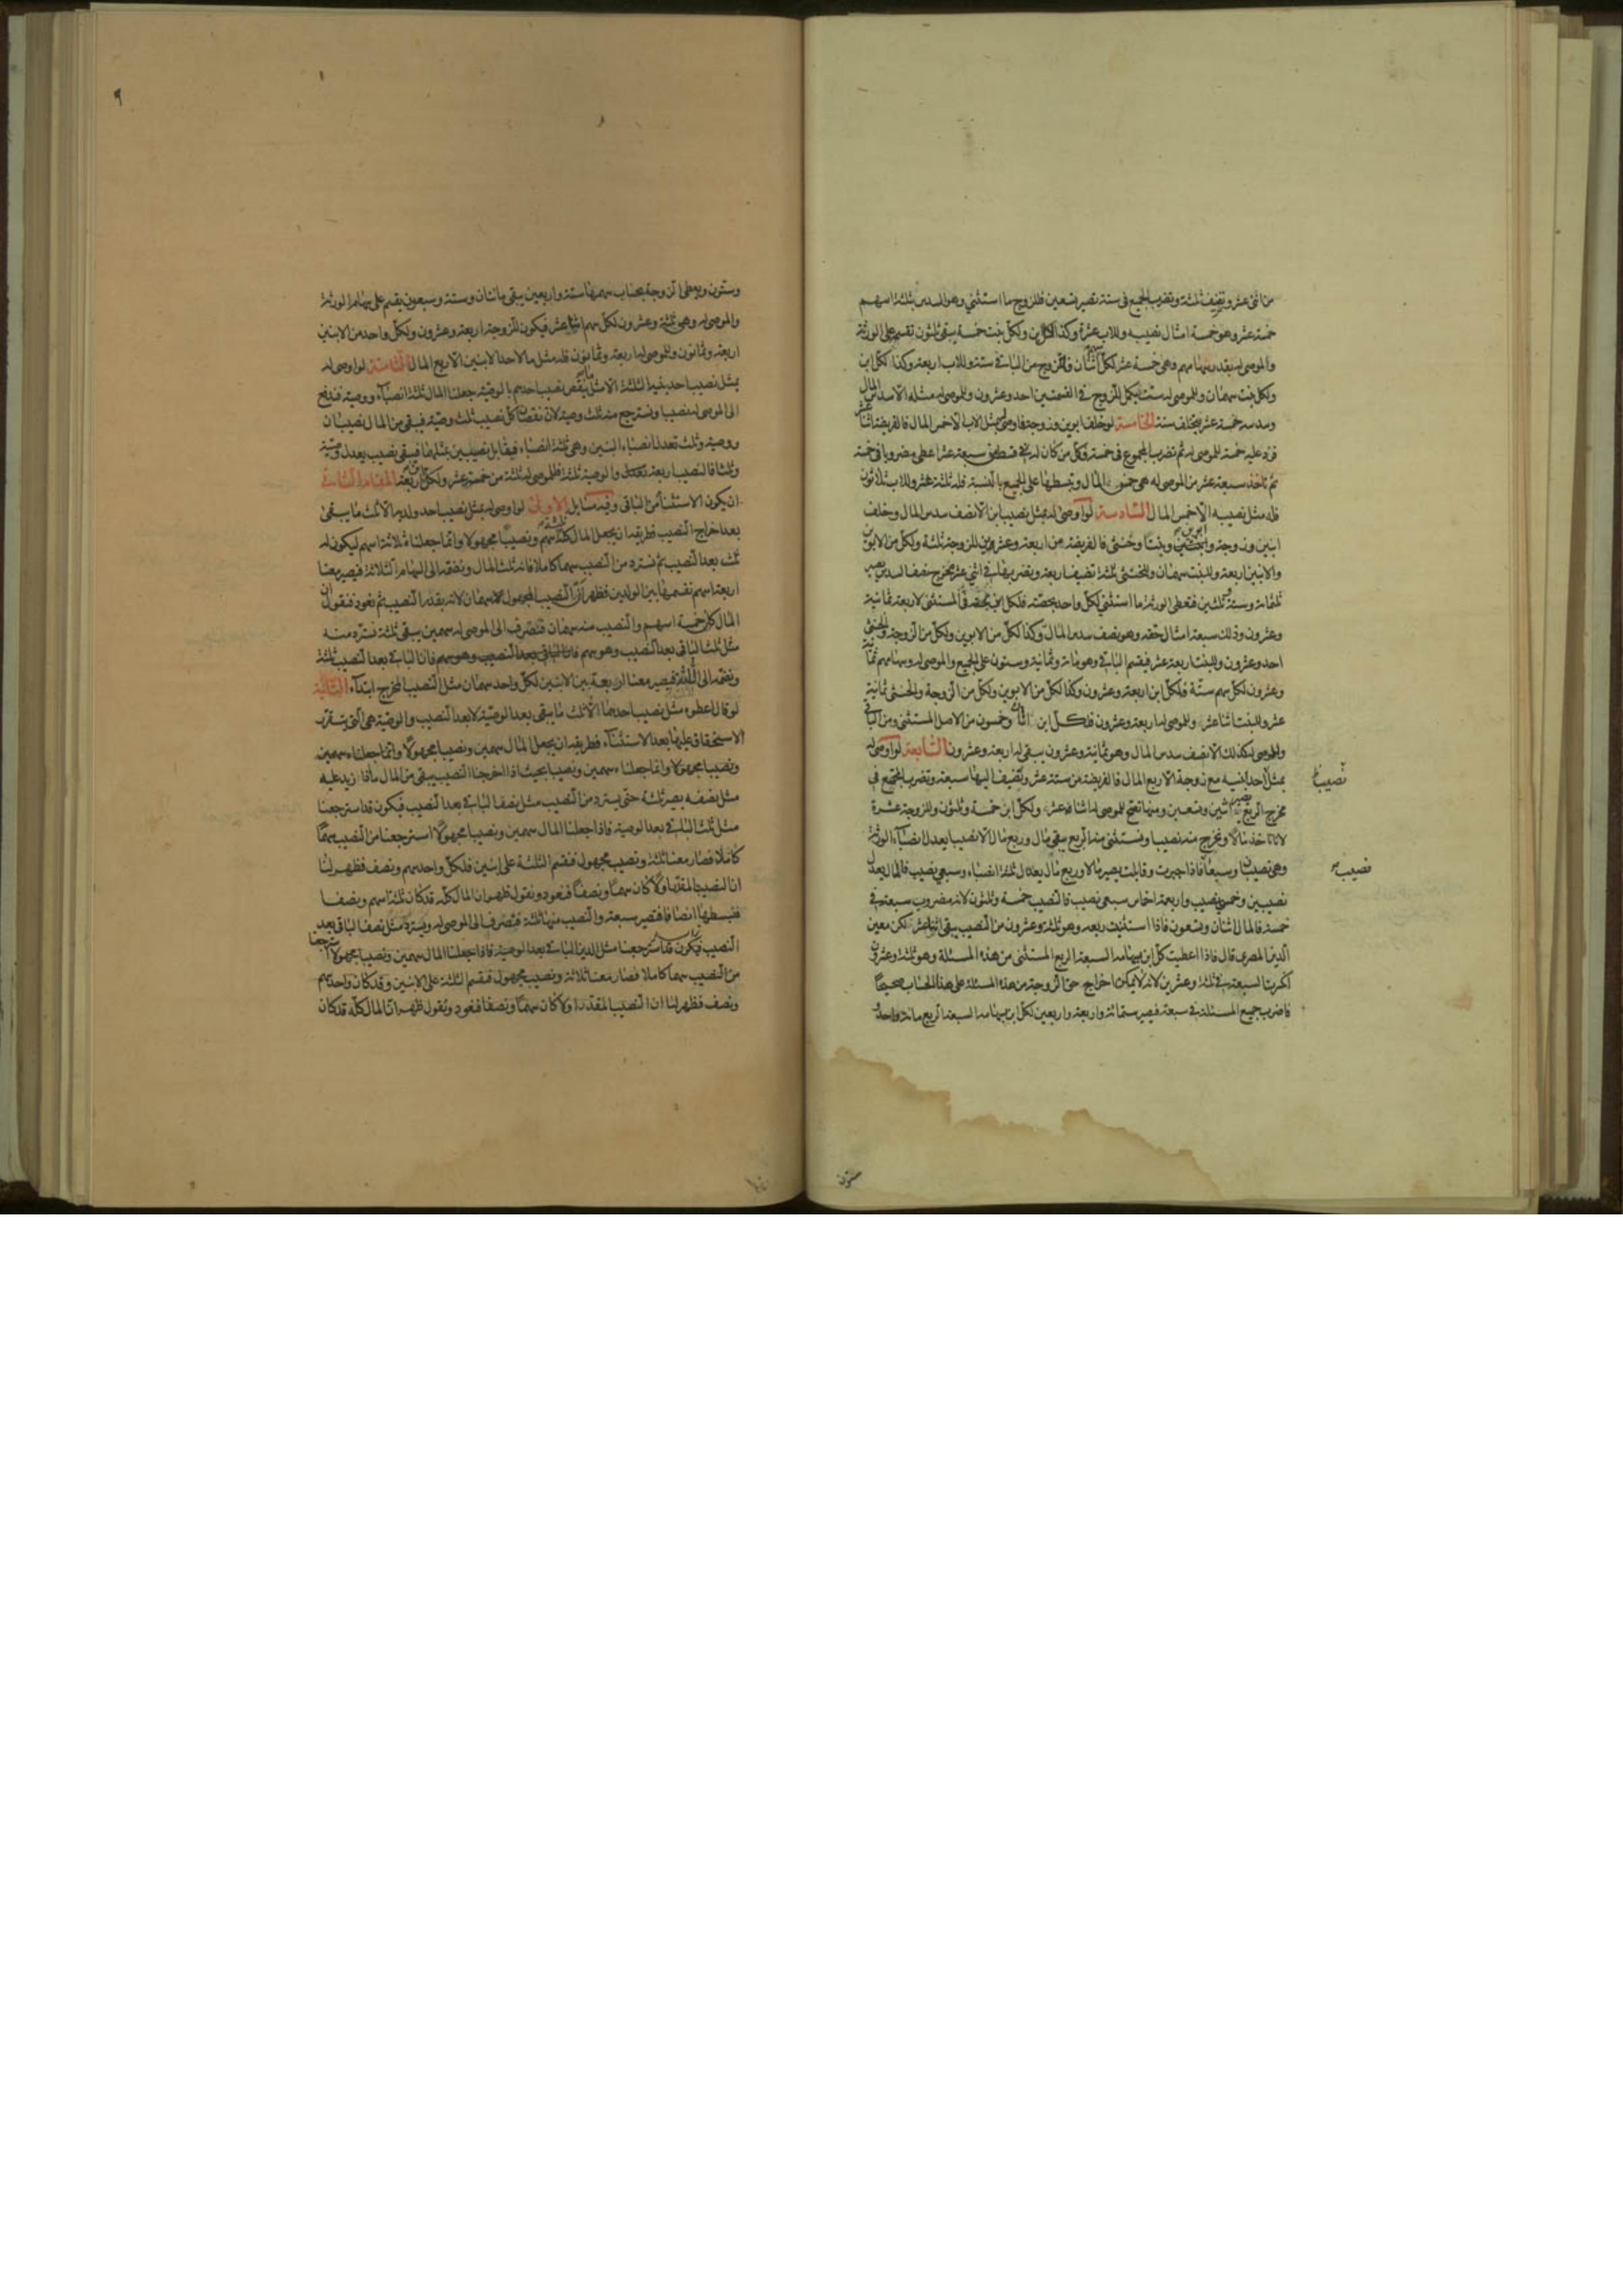 من اثنى عشر وتضيف ثلثة وتضرب الجميع فى ستة تصير تسعين فللزوج ما استثنى وهو السدس بثلثة اسهم
خمسة عشر وهو خمسة امثال نصيبه وللاب عشرة وكذا لكل ابن ولكل بنت خمسة يبقى ثلثون تقسم على الورثة
والموصى له بقدر سهامهم وهى خمسة عشر لكل سهم اثنان فللزوج من الباقى ستة وللاب اربعة وكذا لكل ابن
ولكل بنت سهمان وللموصى له ست فيكمل للزوج فى القسمتين احد وعشرون وللموصى له مثله الا سدس المال
وسدسه خمسة عشر يتخلف ستة الخامسة لو خلف ابوين وزوجة واوصى بمثل الاب الا خمس المال فالفريضة اثنا عشر
فزد عليه خمسة للموصى له ثم تضرب المجموع فى خمسة فكل من كان له شى من سبعة عشر اعطى مضروبا فى خمسة
ثم تاخذ سبعة عشر من الموصى له هى خمس المال وتبسطها على الجميع بالنسبة فله ثلثة عشر وللاب ثلاثون
فله مثل نصيبه الا خمس المال السادسة لو اوصى له بمثل نصيب ابن الا نصف سدس المال وخلف
ابنين وزوجة وابوين وبنتا وخنثى فالفريضة من اربعة وعشرين للزوجة ثلثة ولكل من الابوين
والابنين اربعة وللبنت سهمان وللخنثى ثلثة تضيف اربعة وتضربها فى اثنى عشر مخرج نصف السدس تصير
ثلثمائة وستة وثلثين فتعطى الورثة ما استثنى لكل واحد بحصته فلكل ابن بحصته فى المستثنى لاربعة ثمانية
وعشرون وذلك سبعة امثال حقه وهو نصف سدس المال وكذا لكل من الابوين ولكل من الزوجة والخنثى
احد وعشرون وللبنت اربعة عشر فيقسم الباقى وهو مائة وثمانية وستون على الجميع والموصى له وسهامهم ثمانية
وعشرون لكل سهم ستة فلكل ابن اربعة وعشرون وكذا لكل من الابوين ولكل من الزوجة والخنثى ثمانية
عشر وللبنت اثنا عشر وللموصى له اربعة وعشرون فلكل ابن اثنان وخمسون من الاصل المستثنى ومن الباقى
وللموصى له كذلك الا نصف سدس المال وهو ثمانية وعشرون يبقى له اربعة وعشرون السابعة لو اوصى له
بمثل احد ابنيه مع زوجة الا ربع المال فالفريضة من ستة عشر وتضيف اليها سبعة وتضرب المجتمع فى
نصيبا
مخرج الربع تصير اثنين وتسعين ومنها تصح للموصى له اثنا عشر ولكل ابن خمسة وثلثون وللزوجة عشرة
لانا ناخذ مالا ونخرج منه نصيبا ونستثنى منه الربع يبقى مال وربع مال الا نصيبا يعدل انصباء الورثة
وهى نصيبان وسبعا فاذا جبرت وقابلت يصير مالا وربع مال يعدل ثلثة انصباء وسبعى نصيب فالمال يعدل
نصيب
نصيبين وخمس نصيب واربعة اخماس سبعى نصيب فالنصيب خمسة وثلثون لانه مضروب سبعة فى
خمسة فالمال اثنان وتسعون فاذا استثنيت ربعه وهو ثلثة وعشرون من النصيب يبقى اثنا عشر لكن معين
الدين المصرى قال فاذا اعطيت كل ابن بسهامه السبعة الربع المستثنى من هذه المسئلة وهو ثلثة وعشرون
انكسرت السبعة فى ثلثة وعشرين لانه لا يمكن اخراج حق الزوجة من هذه المسئلة على هذا الحساب صحيحا
فاضرب جميع المسئلة فى سبعة فيصير ستمائة واربعة واربعين لكل ابن بسهامه السبعة الربع مائة واحد
ستون
٩
وستون ويعطى الزوجة بحساب سهمها ستة واربعين يبقى مائتان وستة وسبعون يقسم على سهام الورثة
والموصى له وهى ثلثة وعشرون لكل سهم اثنا عشر فيكون للزوجة اربعة وعشرون ولكل واحد من الابنين
اربعة وثمانون وللموصى له اربعة وثمانون فله مثل ما لاحد الابنين الا ربع المال الثامنة لو اوصى له
بمثل نصيب احد بنيه الثلثة الا مثل ما ينقص نصيب احدهم بالوصية جعلنا المال ثلثة انصباء ووصية فندفع
الى الموصى له نصيبا ونسترجع منه ثلث وصية لان نقصان كل نصيب ثلث وصية فيبقى من المال نصيبان
ووصية وثلث تعدل انصباء البنين وهى ثلثة انصباء فيقابل نصيبين بمثلهما فيبقى نصيب يعدل وصية
وثلثا فالنصيب اربعة والوصية ثلثة فللموصى له ثلثة من خمسة عشر ولكل ابن اربعة المقام الثانى
ان يكون الاستثناء من الباقى وفيه مسايل الاولى لو اوصى له بمثل نصيب احد ولديه الا ثلث ما يبقى
بعد اخراج النصيب فطريقه ان يجعل المال كله ثلثة اسهم ونصيبا مجهولا وانما جعلناه ثلاثة اسهم ليكون له
ثلث بعد النصيب ثم نسترد من النصيب سهما كاملا فانه ثلث المال ونضمه الى السهام الثلاثة فيصير معنا
اربعة اسهم نقسمها بين الولدين فظهر ان النصيب المجهول سهمان لانه بقدر النصيب ثم نعود فنقول ان
المال كان خمسة اسهم والنصيب منه سهمان فتصرف الى الموصى له سهمين يبقى ثلثة نسترد منه
مثل ثلث الباقى بعد النصيب وهو سهم فان الباقى بعد النصيب وهو سهم فان الباقى بعد النصيب ثلثة
ونضمه الى الثلثة فيصير معنا اربعة بين الابنين لكل واحد سهمان مثل النصيب المخرج ابتداء الثانية
لو قال اعطوه مثل نصيب احدهما الا ثلث ما يبقى بعد الوصية لا بعد النصيب والوصية هى التى يستقر
الاستحقاق عليها بعد الاستثناء فطريقه ان يجعل المال سهمين ونصيبا مجهولا وانما جعلناه سهمين
ونصيبا مجهولا وانما جعلناه سهمين ونصيبا بحيث اذا اخرجنا النصيب يبقى من المال ما اذا زيد عليه
مثل نصفه يصير ثلثة حتى يسترد من النصيب مثل نصف الباقى بعد النصيب فيكون قد استرجعنا
مثل ثلث الباقى بعد الوصية فاذا جعلنا المال سهمين ونصيبا مجهولا استرجعنا من النصيب سهما
كاملا فصار معنا ثلثة ونصيب مجهول فنقسم الثلثة على ابنين فلكل واحد سهم ونصف فظهر لنا
ان النصيب المقدر اولا كان سهما ونصفا فنعود ونقول ظهر ان المال كله قد كان ثلثة اسهم ونصفا
فنبسطها انصافا فتصير سبعة والنصيب منها ثلثة فتصرف الى الموصى له ويسترد مثل نصف الباقى بعد
النصيب فيكون قد استرجعنا مثل ثلث الباقى بعد الوصية فاذا جعلنا المال سهمين ونصيبا مجهولا استرجعنا
من النصيب سهما كاملا فصار معنا ثلاثة ونصيب مجهول فنقسم الثلثة على الابنين وقد كان واحد سهم
ونصف فظهر لنا ان النصيب المقدر اولا كان سهما ونصفا فنعود ونقول ظهر ان المال كله قد كان